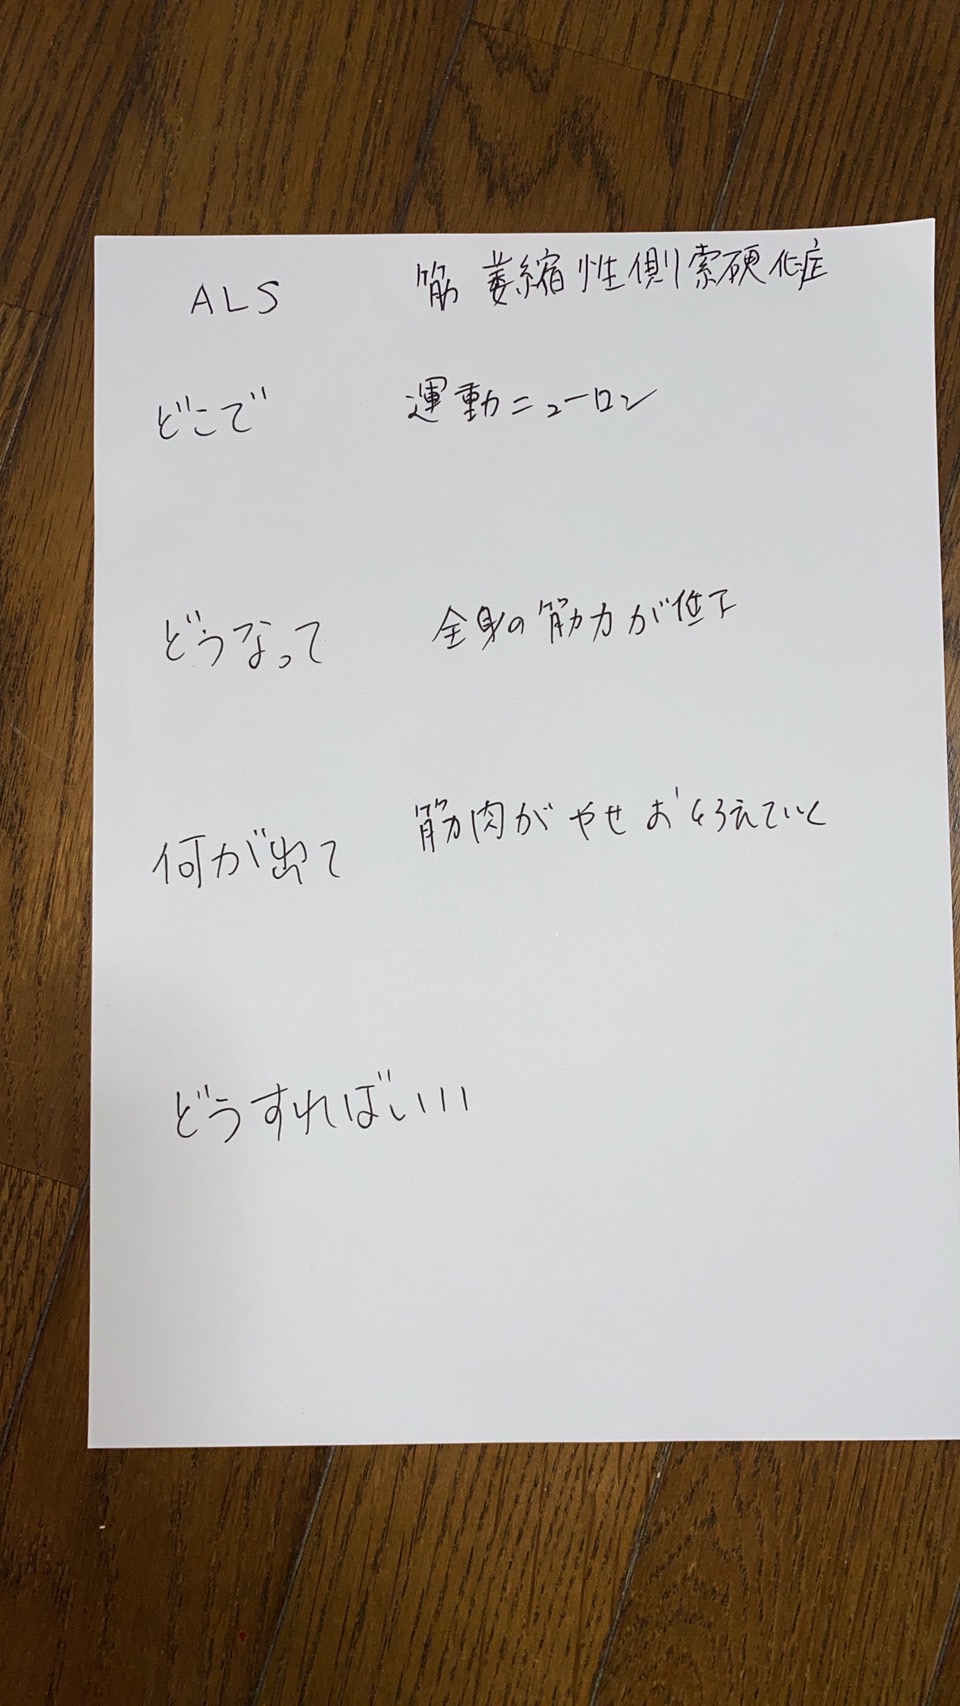 ALS 筋萎縮性側索硬化症
どこで 運動ニューロン
どうなって 全身の筋力が低下
何が出て 筋肉がやせおとろえていく
どうすればいい